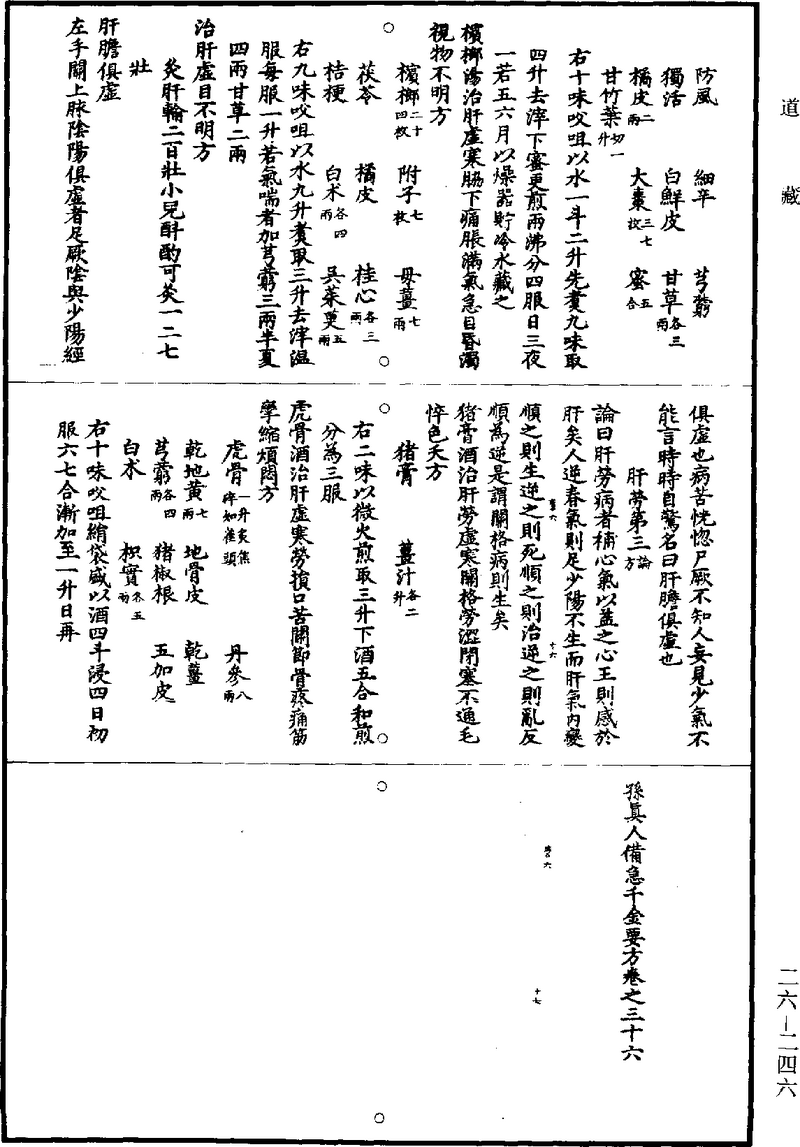 道藏
防風 細辛 芎藭
獨活 白鮮皮 甘草各三兩
橘皮二兩 大棗三七枚 蜜五合
甘竹葉切一升
右十味㕮咀以水一斗二升先煑九味取
四升去滓下蜜更煎兩沸分四服日三夜
一若五六月以燥器貯冷水藏之
檳榔湯治肝虛寒脇下痛脹滿氣急目昏濁
視物不明方
檳榔二十四枚 附子七枚 母薑七兩
茯苓 橘皮 桂心各三兩
桔梗 白术各四兩 吳茱萸五兩
右九味㕮咀以水九升煑取三升去滓温
服每服一升若氣喘者加芎藭三兩半夏
四兩甘草二兩
治肝虛目不明方
灸肝輪二百壯小兒斟酌可灸一二七
壯
肝膽俱虛
左手關上脉陰陽俱虛者足厥陰與少陽經
俱虛也病苦恍惚尸厥不知人妄見少氣不
能言時時自驚名曰肝膽俱虛也
肝勞第三論方
論曰肝勞病者補心氣以益之心王則感於
肝矣人逆春氣則足少陽不生而肝氣內變
順之則生逆之則死順之則治逆之則亂反
順為逆是謂關格病則生矣
猪膏酒治肝勞虛寒關格勞澀閉塞不通毛
悴色夭方
猪膏 薑汁各二升
右二味以微火煎取三升下酒五合和煎
分為三服
虎骨酒治肝虛寒勞損口苦關節骨疼痛筋
攣縮煩悶方
虎骨一升炙焦碎如雀頭 丹參八兩
乾地黃七兩 地骨皮 乾薑
芎藭各四兩 猪椒根 五加皮
白朮 枳實各五兩
右十味㕮咀絹袋盛以酒四斗浸四日初
服六七合漸加至一升日再
十六
孫真人備急千金要方卷之三十六
十七
二六-二四六